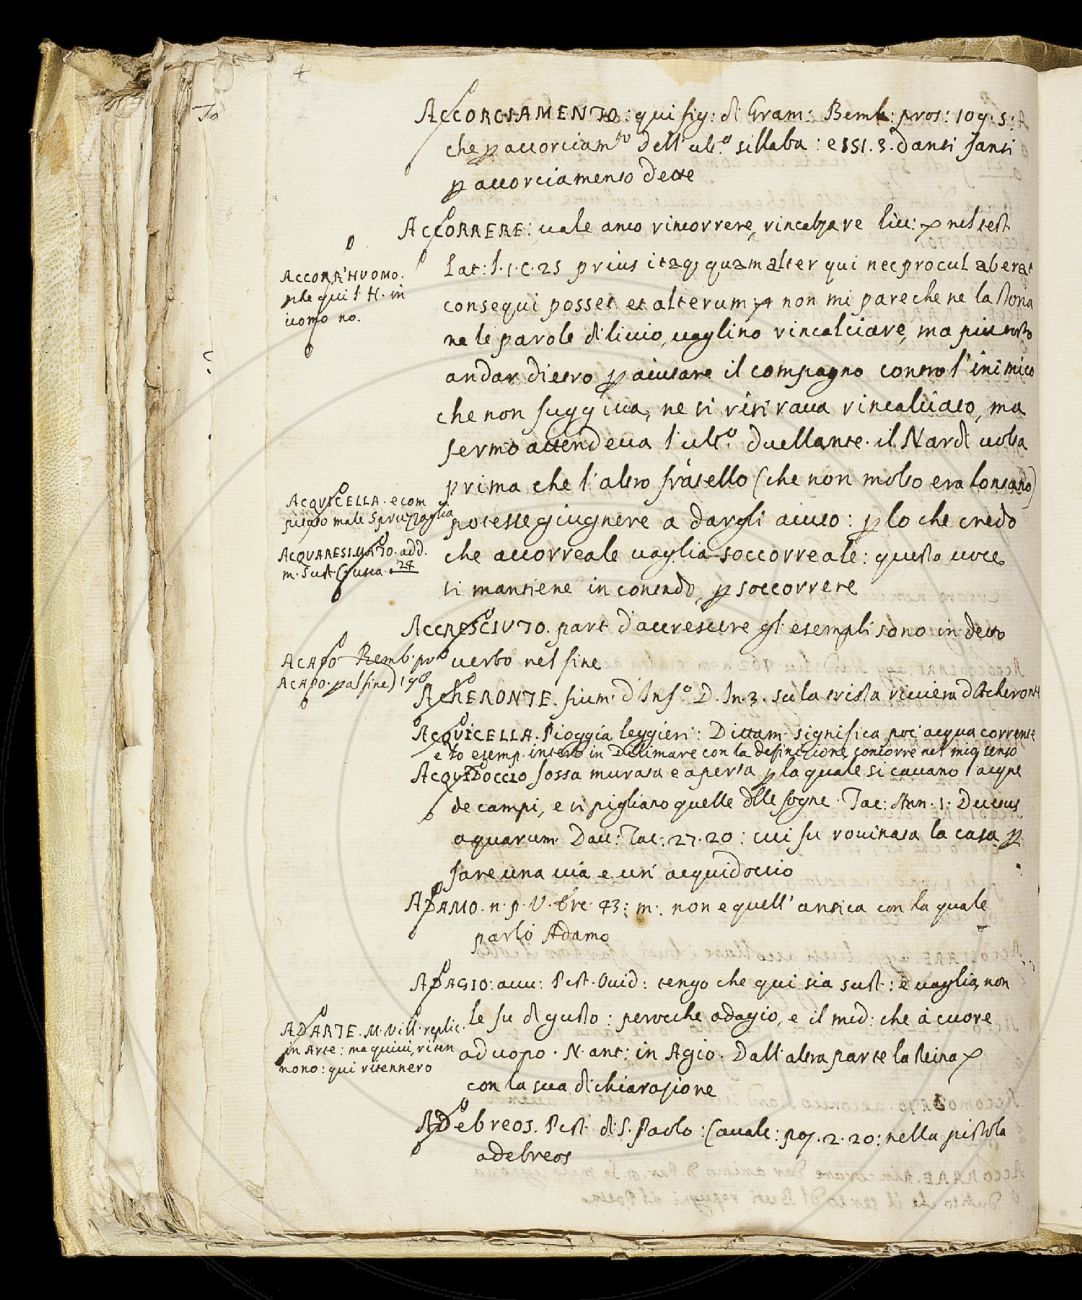 4
ACCORCIAMENTO: qui sig: di Gram: Bemb: pros: 109. 5:
che p accorciam.to dell' ult.a sillaba: e 151. 3. danti santi
p accorciamento dette
ACCORRERE: vale anco rincorrere, rincalzare Liv: nel test
Lat: l. 1. c. 25 prius itaq; quam alter qui nec procul aberat
consequi posset et alterum non mi pare che ne la storia
ne le parole di livio, vaglino rincalciare, ma piu tosto
andar dietro p aiutare il compagno contro l'inimico
che non fuggiva, ne si ritirava rincalciato, ma
fermo attendeva l'ult.o duellante. il Nardi volta
prima che l'altro fratello (che non molto era lontano)
potesse giugnere a dargli aiuto: p lo che credo
che accorreale vaglia soccorreale: questa voce
si mantiene in contado, p soccorrere
ACCRESCIUTO. part d'accrescere gl' esempli sono in detto
verbo nel fine
ACHERONTE. fium: d'Inf.o D. In. 3. su la trista riviera d'Acheronte
ACQUICELLA. Pioggia leggieri: Dittam: significa poi acqua corrente
e lo esemp. inserto in Dilimare con la definizione, concorre nel miq senso
ACQUIDOCCIO fossa murata e aperta p la quale si cavano l'acque
de campi, e si pigliano quelle delle fogne. Tac: Ann. 1. Ductus
aquarum Dav: Tac: 27. 20: cui fu rovinata la casa p
fare una via e un' acquidoccio
ADAMO. n. p. V. bre. 43: m. non e quell' antica con la quale
parlò Adamo
ADAGIO: avv: Pist. Ovid: tengo che qui sia sust: e vaglia, non
le fu di gusto: peroche adagio, e il med: che à cuore
ad uopo. N. ant: in Agio. Dall' altra parte la Reina
con la sua dichiarazione
ADEBREOS. Pist: di S. Paolo: Cavale: pog. 2. 20: nella pistola
adebreos
ACCORR'HUOMO.
ple qui l' H. in
uomo no.
ACQUICELLA. e com
pitato male Spruzzaglia
ACQUARESIMATO. add.
m. Sust Crusca. 24
ACAPO Bemb. pro
ACAPO. pal fine) 190
ADARTE. M. Vill. replic.
in Arte: ma quivi, riten
nono: qui ritennero